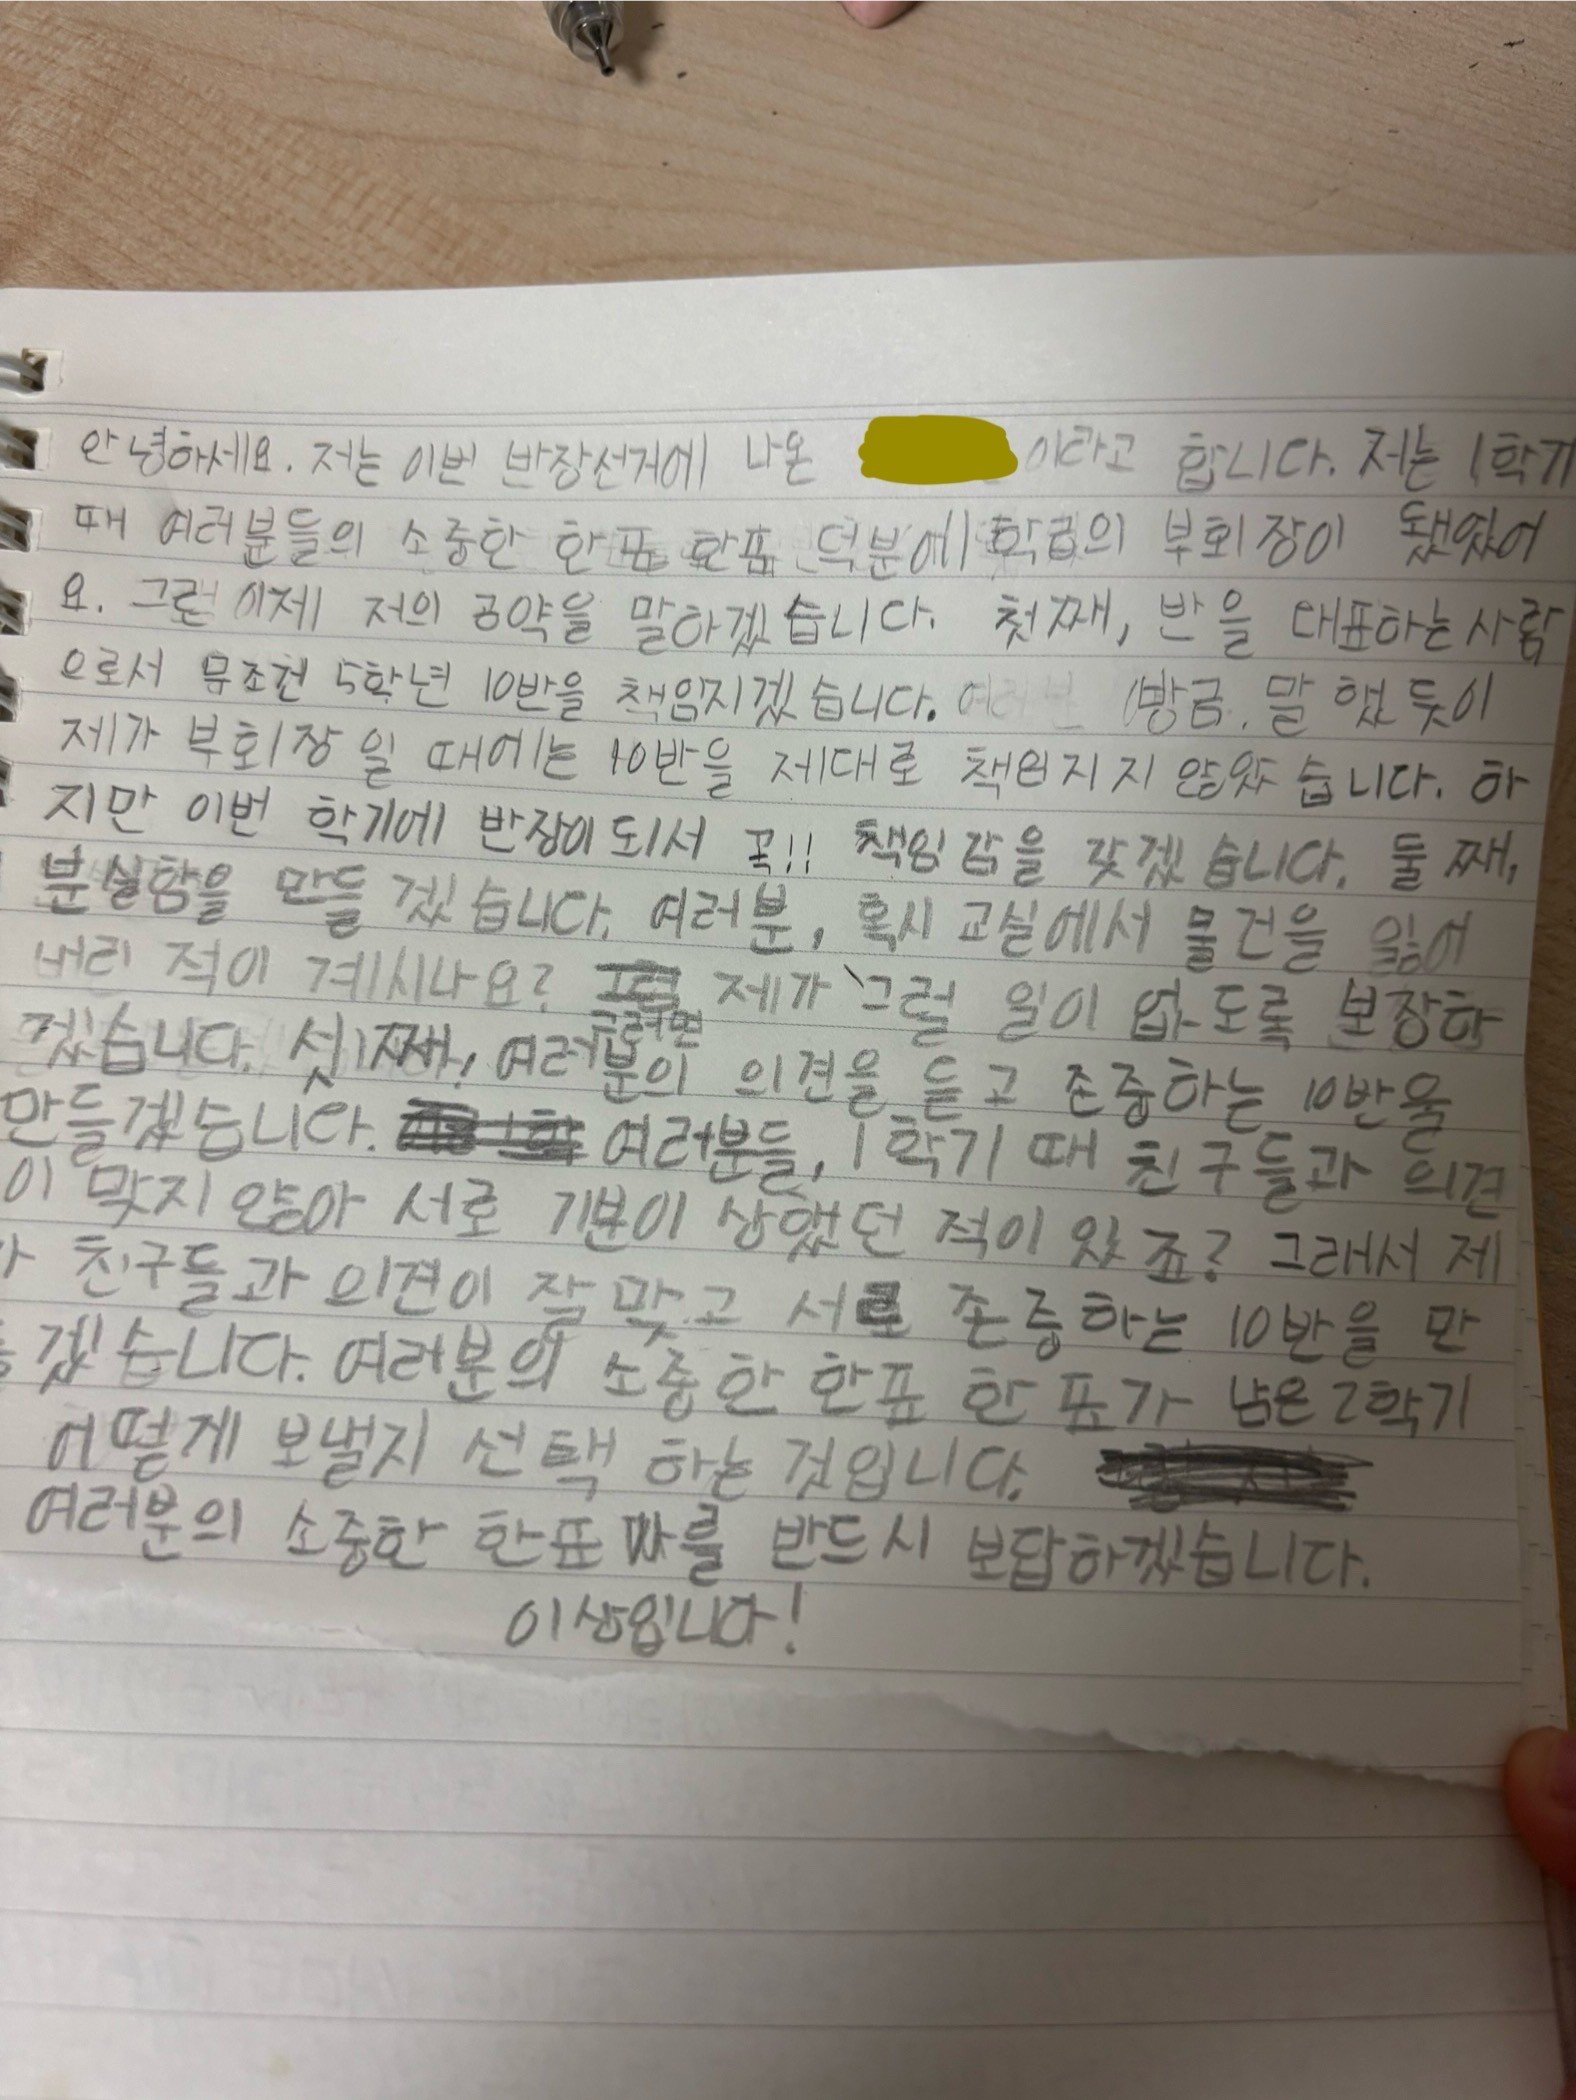 안녕하세요. 저는 이번 반장선거에 나온 이라고 합니다. 저는 1학기
때 여러분들의 소중한 한표 한표 덕분에 학급의 부회장이 됐었어
요. 그럼 이제 저의 공약을 말하겠습니다. 첫째, 반을 대표하는 사람
으로서 무조건 5학년 10반을 책임지겠습니다. 여러분 방금. 말 했 듯이
제가 부회장 일 때에는 10반을 제대로 책임지지 않았습니다. 하
지만 이번 학기에 반장이 되서 꼭!! 책임감을 갖겠습니다. 둘째,
분실함을 만들겠습니다. 여러분, 혹시 교실에서 물건을 잃어
버린 적이 계시나요? 그러면 제가 그럴 일이 없도록 보장하
겠습니다. 셋째, 여러분의 의견을 듣고 존중하는 10반을
만들겠습니다. 여러분들, 1학기 때 친구들과 의견
이 맞지 않아 서로 기분이 상했던 적이 있죠? 그래서 제
가 친구들과 의견이 잘 맞고 서로 존중하는 10반을 만
들겠습니다. 여러분의 소중한 한표 한표가 남은 2학기
어떻게 보낼지 선택 하는 것입니다.
여러분의 소중한 한표 를 반드시 보답하겠습니다.
이상입니다!